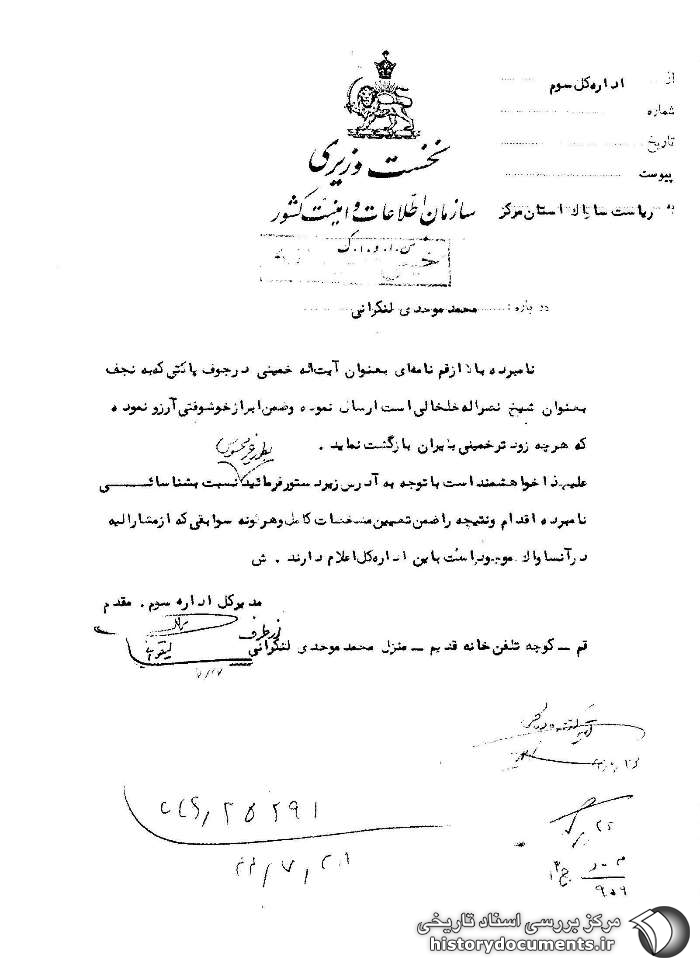 از اداره کل سوم
شماره
تاریخ
پیوست
نخست وزیری
سازمان اطلاعات و امنیت کشور
به ریاست ساواک استان مرکز
درباره: محمد موحدی لنکرانی
نامبرده بالا از قم نامه‌ای بعنوان آیت‌اله خمینی در جوف پاکتی که به نجف
بعنوان شیخ نصراله خلخالی است ارسال نموده و ضمن ابراز خوشوقتی آرزو نموده
که هر چه زود تر خمینی بایران بازگشت نماید .
علیهذا خواهشمند است با توجه به آدرس زیر دستور فرمائید نسبت بشناسائی
نامبرده اقدام و نتیجه را ضمن تعیین مشخصات کامل و هر گونه سوابقی که از مشارالیه
در آنساواک موجود است باین اداره کل اعلام دارند . ش
مدیر کل اداره سوم . مقدم
از طرف
قم ــ کوچه تلفن خانه قدیم ــ منزل محمد موحدی لنکرانی
۲۵۲۹۱
۴۴/۷/۲۸
۹۵۹
مرکز بررسی اسناد تاریخی
historydocuments.ir